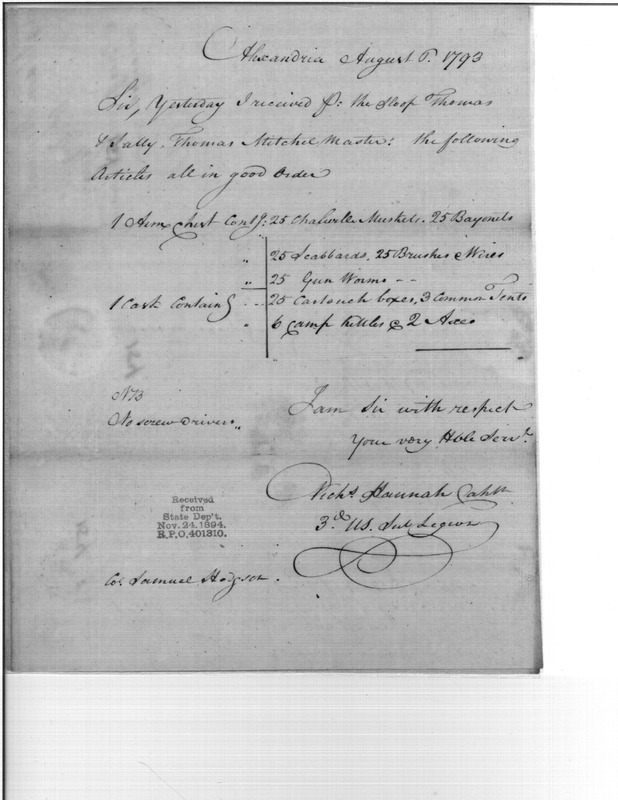 Alexandria August 6. 1793
Sir, Yesterday I received ⅌: the Sloop Thomas
& Sally, Thomas Mitchel Master: the following
Articles all in good Order
1 Arm Chest Contg: 25 Muskets. 25 Bayonets
" 25 Scabbards, 25 Brushes & Wires
" 25 Gun Worms - -
1 Cask Containg - - 25 Cartouch boxes, 3 Common Tents
" 6 Camp Kettles & 2 Axes
NB
No screw drivers "
I am Sir with respect
Your very Hble Servt.
Nichs. Hannah Captn
3d. US. Sub Legion
Received
from
State Dep't.
Nov. 24. 1894.
R.P.O. 401310.
Col Samuel Hodgson.